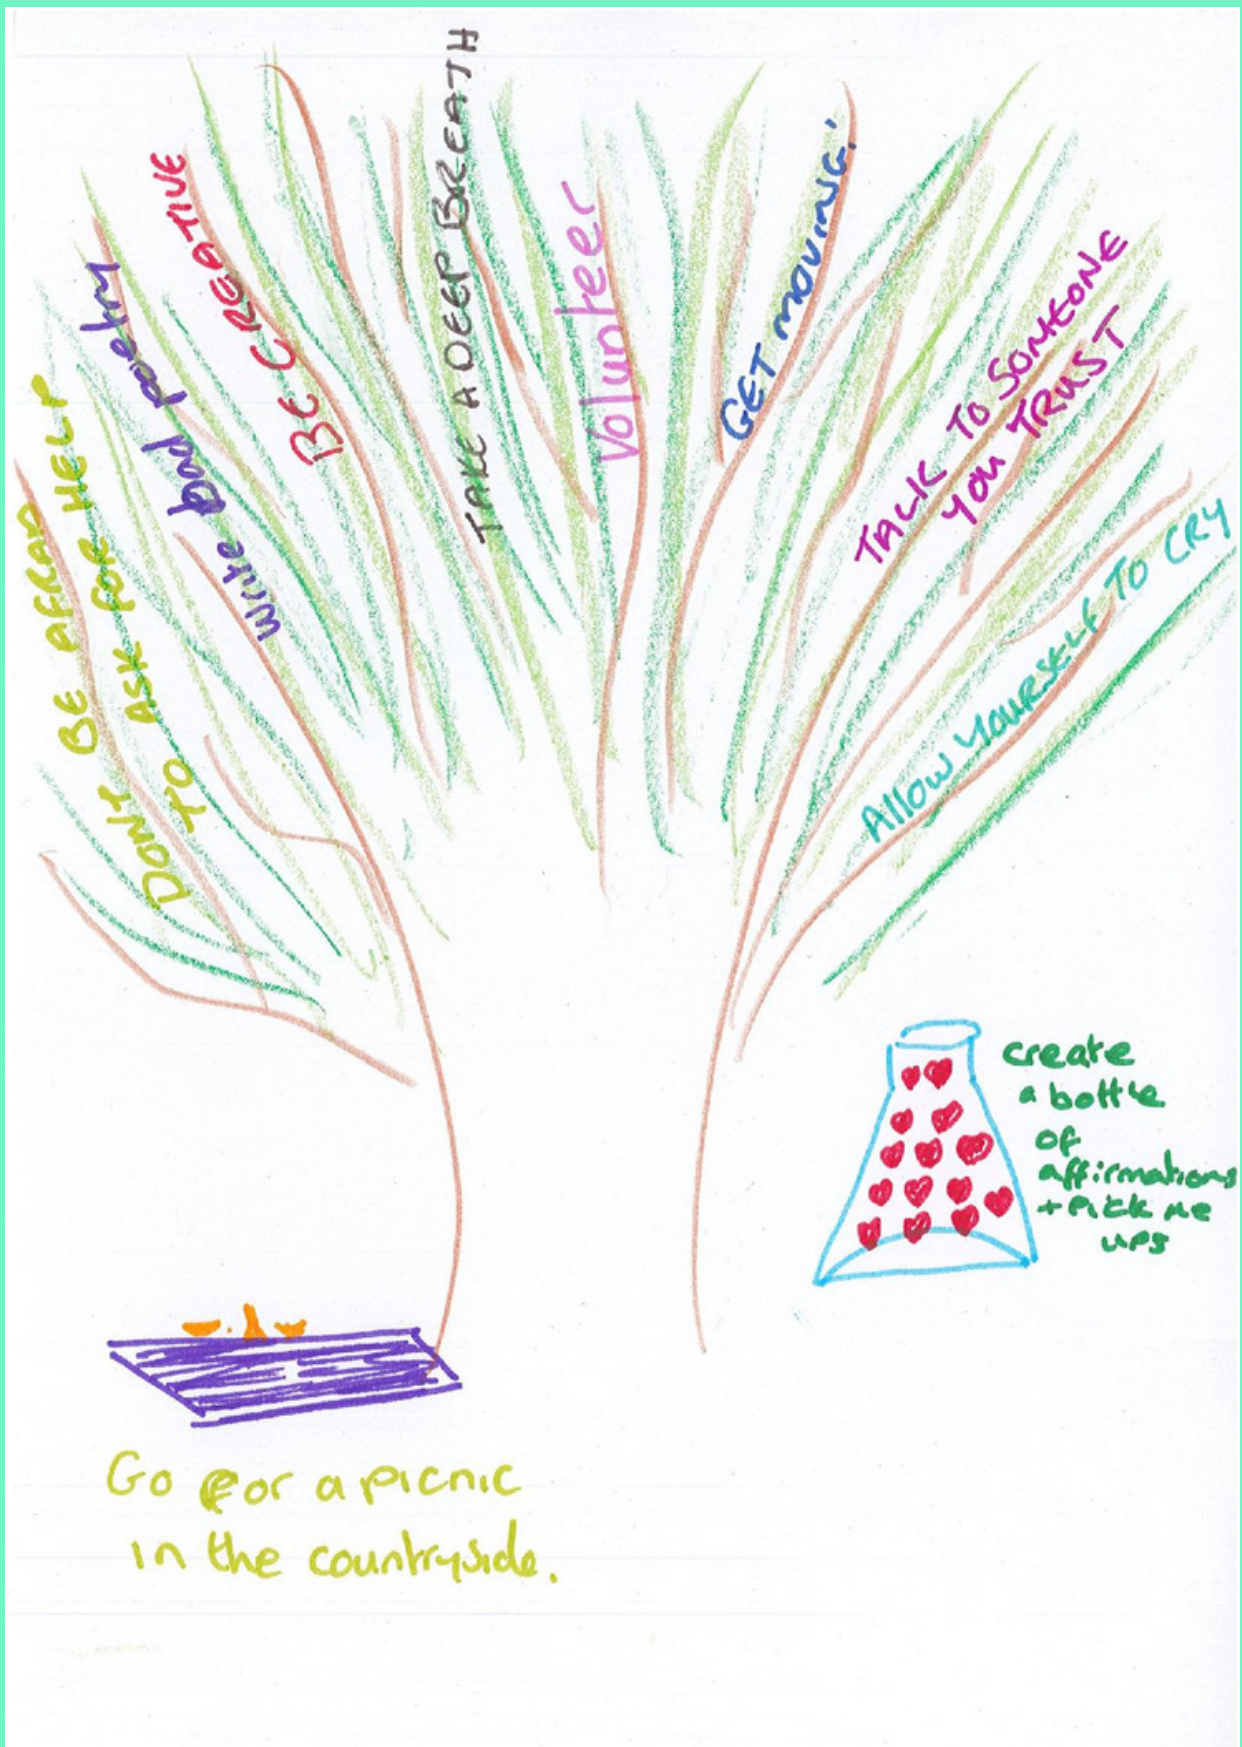 DON'T BE AFRAID
TO ASK FOR HELP
Write bad poetry
BE CREATIVE
TAKE A DEEP BREATH
Volunteer
GET MOVING!
TALK TO SOMEONE
YOU TRUST
Allow YOURSELF TO CRY
create
a bottle
of
affirmations
+ Pick Me
ups
Go for a picnic
in the countryside.